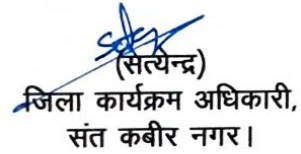 (सत्येन्द्र)
जिला कार्यक्रम अधिकारी,
संत कबीर नगर।